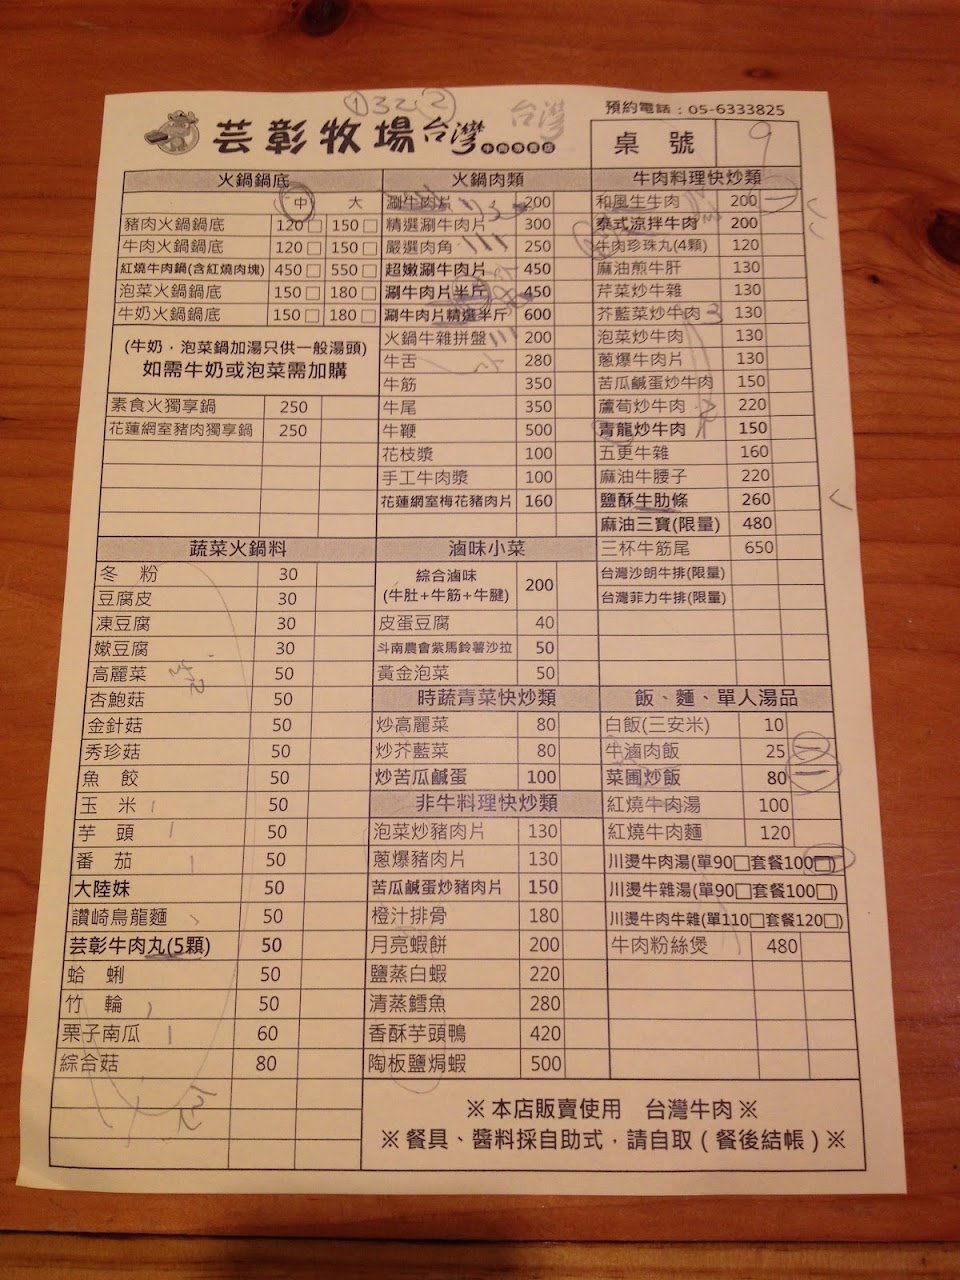 ①32②
台灣
預約電話：05-6333825
芸彰牧場台灣牛肉專賣店
桌號 9
火鍋鍋底
中 大
豬肉火鍋鍋底 120□ 150□
牛肉火鍋鍋底 120□ 150□
紅燒牛肉鍋(含紅燒肉塊) 450□ 550□
泡菜火鍋鍋底 150□ 180□
牛奶火鍋鍋底 150□ 180□
(牛奶，泡菜鍋加湯只供一般湯頭)
如需牛奶或泡菜需加購
素食火獨享鍋 250
花蓮網室豬肉獨享鍋 250
蔬菜火鍋料
冬 粉 30
豆腐皮 30
凍豆腐 30
嫰豆腐 30
高麗菜 50
杏鮑菇 50
金針菇 50
秀珍菇 50
魚 餃 50
玉 米 50
芋 頭 50
番 茄 50
大陸妹 50
讚崎烏龍麵 50
芸彰牛肉丸(5顆) 50
蛤 蜊 50
竹 輪 50
栗子南瓜 60
綜合菇 80
火鍋肉類
涮牛肉片 200
精選涮牛肉片 300
嚴選肉角 250
超嫩涮牛肉片 450
涮牛肉片半斤 450
涮牛肉片精選半斤 600
火鍋牛雜拼盤 200
牛舌 280
牛筋 350
牛尾 350
牛鞭 500
花枝漿 100
手工牛肉漿 100
花蓮網室梅花豬肉片 160
滷味小菜
綜合滷味
(牛肚+牛筋+牛腱) 200
皮蛋豆腐 40
斗南農會紫馬鈴薯沙拉 50
黃金泡菜 50
時蔬青菜快炒類
炒高麗菜 80
炒芥藍菜 80
炒苦瓜鹹蛋 100
非牛料理快炒類
泡菜炒豬肉片 130
蔥爆豬肉片 130
苦瓜鹹蛋炒豬肉片 150
橙汁排骨 180
月亮蝦餅 200
鹽蒸白蝦 220
清蒸鱈魚 280
香酥芋頭鴨 420
陶板鹽焗蝦 500
牛肉料理快炒類
和風生牛肉 200
泰式涼拌牛肉 200
牛肉珍珠丸(4顆) 120
麻油煎牛肝 130
芹菜炒牛雜 130
芥藍菜炒牛肉 130
泡菜炒牛肉 130
蔥爆牛肉片 130
苦瓜鹹蛋炒牛肉 150
蘆筍炒牛肉 220
青龍炒牛肉 150
五更牛雜 160
麻油牛腰子 220
鹽酥牛肋條 260
麻油三寶(限量) 480
三杯牛筋尾 650
台灣沙朗牛排(限量)
台灣菲力牛排(限量)
飯、麵、單人湯品
白飯(三安米) 10
牛滷肉飯 25
菜圃炒飯 80
紅燒牛肉湯 100
紅燒牛肉麵 120
川燙牛肉湯(單90□套餐100□)
川燙牛雜湯(單90□套餐100□)
川燙牛肉牛雜(單110□套餐120□)
牛肉粉絲煲 480
※本店販賣使用 台灣牛肉※
※餐具、醬料採自助式，請自取（餐後結帳）※